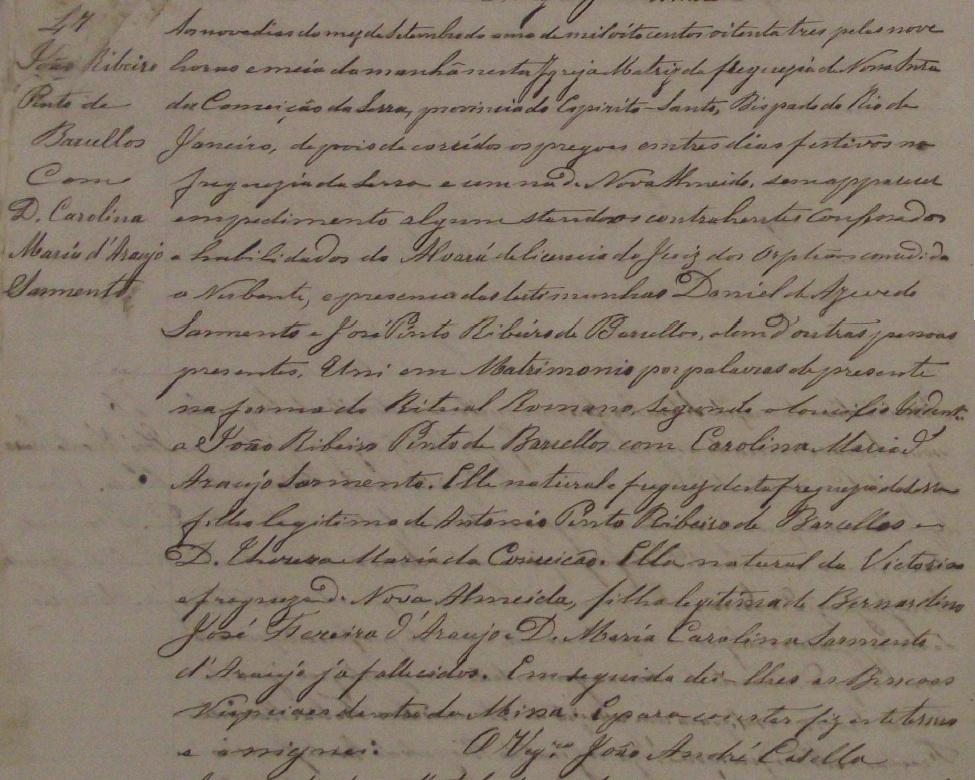 47
João Ribeiro
Pinto de
Barcellos
Com
D. Carolina
Maria d'Araujo
Sarmento
Aos nove dias do mez de Setembro do anno de mil oito centos oitenta tres pelas nove
horas e meia da manhã nesta Igreja Matriz da freguezia de Nossa Snra
da Conceição da Serra, provincia do Espirito-Santo, Bispado do Rio de
Janeiro, depois de corridos os pregoes em tres dias festivos na
freguezia da Serra e em na de Nova Almeida, sem apparecer
empedimento algum stando os contrahentes confessados
e habilidados do Alvará de licencia do Juiz dos Orphãos concedida
a Nubente, e presença das testimunhas Daniel de Azevedo
Sarmento e José Pinto Ribeiro de Barcellos, alem d'outras pessoas
presentes, Uni em Matrimonio por palavras de presente
na forma do Ritual Romano, segundo o Concilio tridentº
a João Ribeiro Pinto de Barcellos com Carolina Maria d'
Araujo Sarmento. Elle natural e freguez desta freguezia da Serra
filho legitimo de Antonio Pinto Ribeiro de Barcellos e
D. Thereza Maria da Conceição. Ella natural da Victoria
e fregueza de Nova Almeida, filha legitima de Bernardino
José Ferreira d'Araujo e D. Maria Carolina Sarmento
d'Araujo já fallecidos. Em seguida dei-lhes as Bençoes
Nupciaes dentri da Missa. E para constar fiz este termo
e assignei. O Vigrº João André Casella